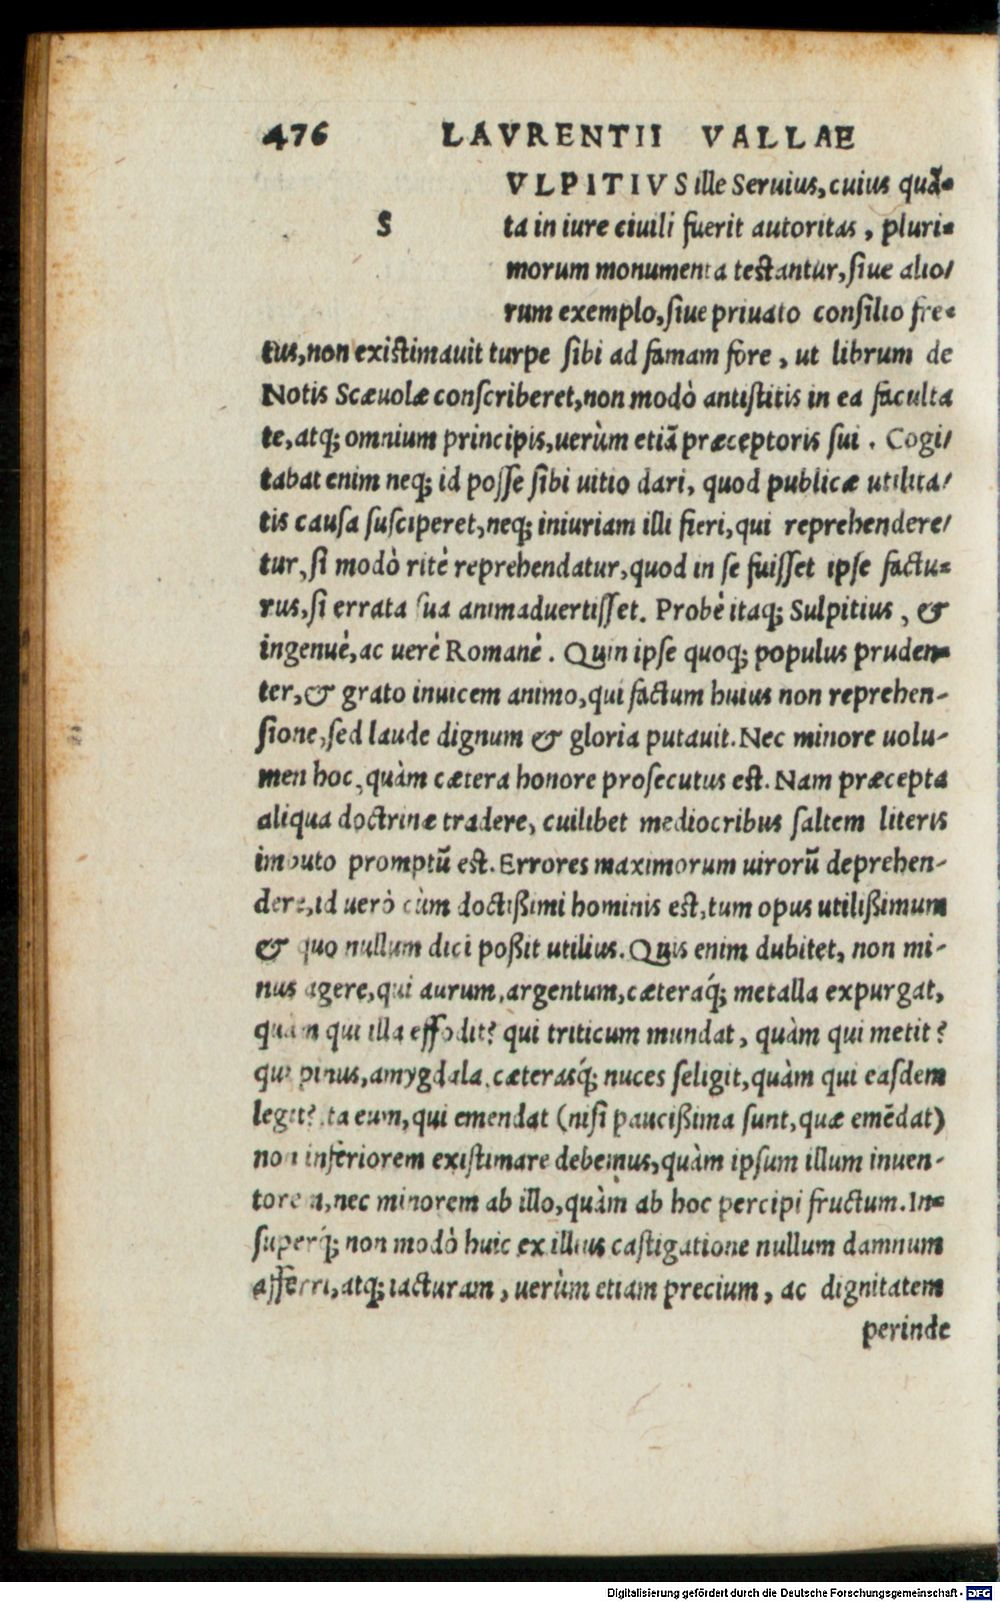 476 LAVRENTII VALLAE
S VLPITIVS ille Seruius, cuius quã-
ta in iure ciuili fuerit autoritas, pluri-
morum monumenta testantur, siue alio/
rum exemplo, siue priuato consilio fre-
tus, non existimauit turpe sibi ad famam fore, ut librum de
Notis Scæuolæ conscriberet, non modò antistitis in ea faculta
te, atq; omnium principis, uerùm etiã præceptoris sui. Cogi/
tabat enim neq; id posse sibi uitio dari, quod publicæ utilita/
tis causa susciperet, neq; iniuriam illi fieri, qui reprehendere/
tur, si modò ritè reprehendatur, quod in se fuisset ipse factu-
rus, si errata sua animaduertisset. Probè itaq; Sulpitius, &
ingenuè, ac uerè Romanè. Quin ipse quoq; populus pruden-
ter, & grato inuicem animo, qui factum huius non reprehen-
sione, sed laude dignum & gloria putauit. Nec minore uolu-
men hoc, quàm cætera honore prosecutus est. Nam præcepta
aliqua doctrinæ tradere, cuilibet mediocribus saltem literis
imbuto promptũ est. Errores maximorum uirorũ deprehen-
dere, id uerò cùm doctißimi hominis est, tum opus utilißimum
& quo nullum dici poßit utilius. Quis enim dubitet, non mi-
nus agere, qui aurum, argentum, cæteraq́; metalla expurgat,
quàm qui illa effodit? qui triticum mundat, quàm qui metit?
qui pinus, amygdala, cæterasq́; nuces seligit, quàm qui easdem
legit? ita eum, qui emendat (nisi paucißima sunt, quæ emẽdat)
non inferiorem existimare debemus, quàm ipsum illum inuen-
torem, nec minorem ab illo, quàm ab hoc percipi fructum. In-
superq́; non modò huic ex illius castigatione nullum damnum
afferri, atq; iacturam, uerùm etiam precium, ac dignitatem
perinde
Digitalisierung gefördert durch die Deutsche Forschungsgemeinschaft - DFG